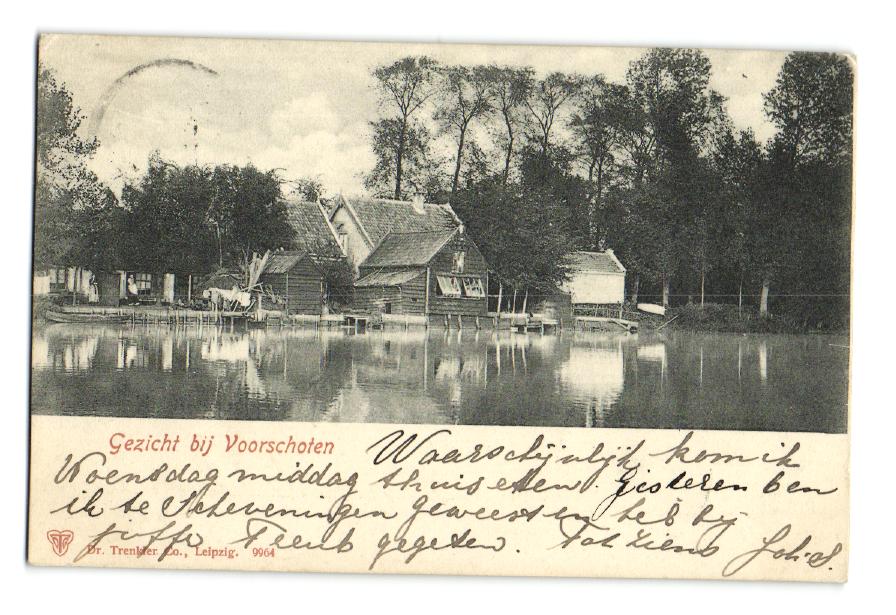 Gezicht bij Voorschoten
Waarschijnlijk kom ik
Woensdag middag thuis eten. Gisteren ben
ik te Scheveningen geweest en heb bij
juffr. Teeub gegeten. Tot ziens Joh. S.
Dr. Trenkler Co., Leipzig. 9964